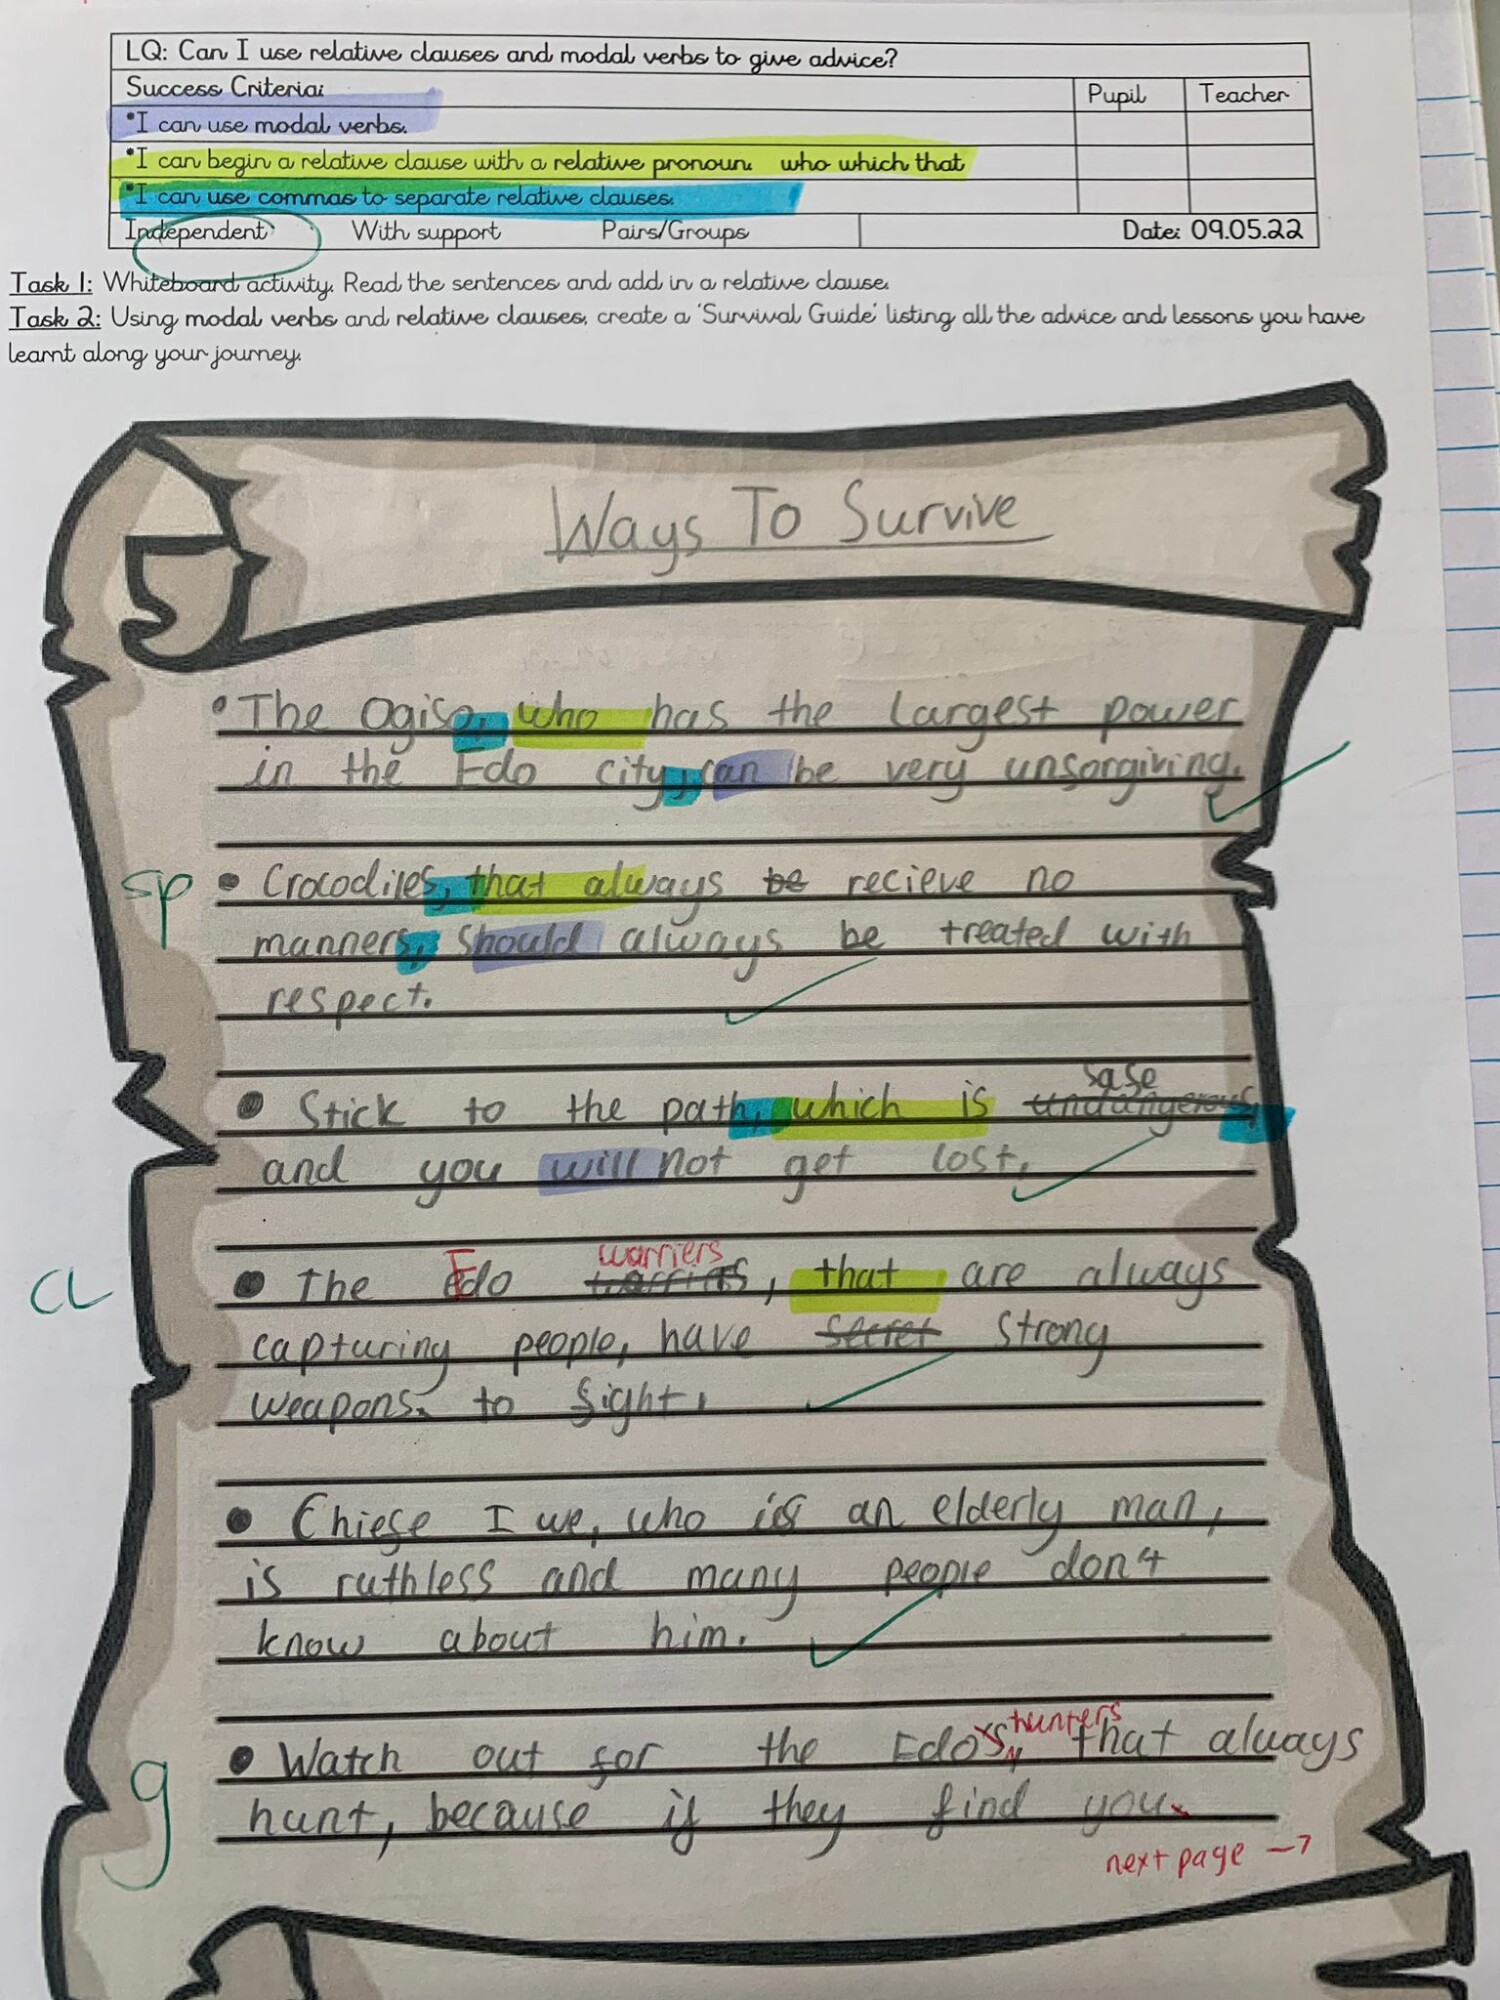 LQ: Can I use relative clauses and modal verbs to give advice?
Success Criteria: Pupil Teacher
*I can use modal verbs.
*I can begin a relative clause with a relative pronoun. who which that
*I can use commas to separate relative clauses.
Independent With support Pairs/Groups Date: 09.05.22
Task 1: Whiteboard activity. Read the sentences and add in a relative clause.
Task 2: Using modal verbs and relative clauses, create a 'Survival Guide' listing all the advice and lessons you have
learnt along your journey.
Ways To Survive
• The Ogiso, who has the largest power
in the Edo city, can be very unforgiving.
sp • Crocodiles, that always be recieve no
manners, should always be treated with
respect.
safe
• Stick to the path, which is undangerous,
and you will not get lost.
warriers
CL • The Edo, that are always
capturing people, have secret strong
weapons to fight.
• Chiefe I we, who is an elderly man,
is ruthless and many people don't
know about him.
hunters
g • Watch out for the Edo's, that always
hunt, because if they find you
next page →